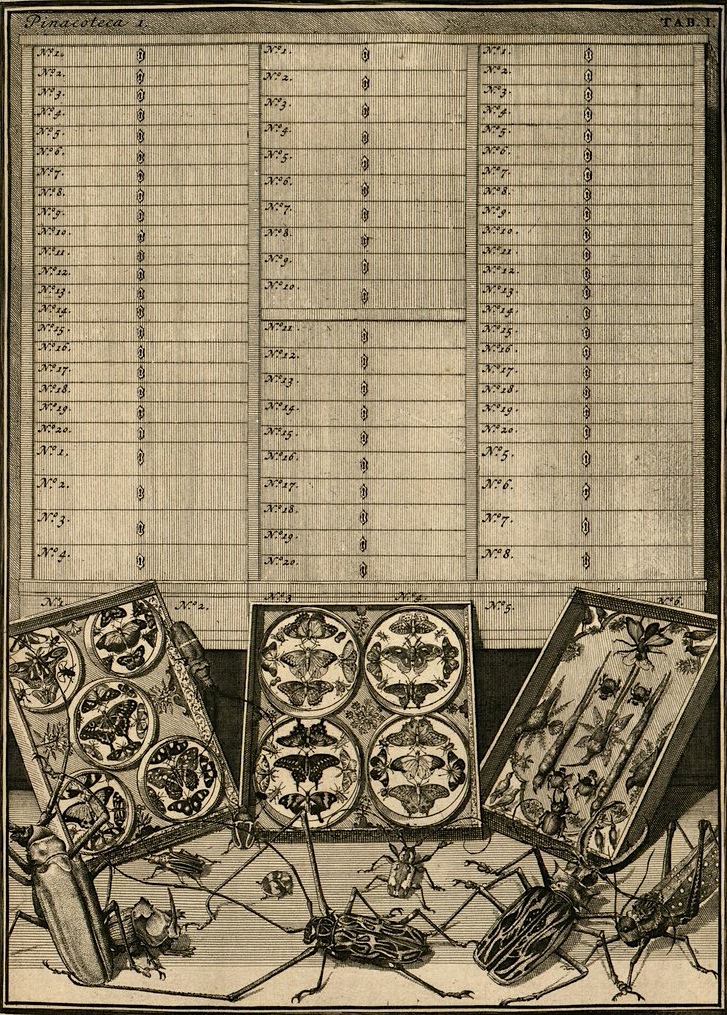 Pinacoteca 1.
TAB. I.
N.º 1.
N.º 2.
N.º 3.
N.º 4.
N.º 5.
N.º 6.
N.º 7.
N.º 8.
N.º 9.
N.º 10.
N.º 11.
N.º 12.
N.º 13.
N.º 14.
N.º 15.
N.º 16.
N.º 17.
N.º 18.
N.º 19.
N.º 20.
N.º 1.
N.º 2.
N.º 3.
N.º 4.
N.º 1.
N.º 2.
N.º 3.
N.º 4.
N.º 5.
N.º 6.
N.º 7.
N.º 8.
N.º 9.
N.º 10.
N.º 11.
N.º 12.
N.º 13.
N.º 14.
N.º 15.
N.º 16.
N.º 17.
N.º 18.
N.º 19.
N.º 20.
N.º 1.
N.º 2.
N.º 3.
N.º 4.
N.º 5.
N.º 6.
N.º 7.
N.º 8.
N.º 9.
N.º 10.
N.º 11.
N.º 12.
N.º 13.
N.º 14.
N.º 15.
N.º 16.
N.º 17.
N.º 18.
N.º 19.
N.º 20.
N.º 5.
N.º 6.
N.º 7.
N.º 8.
N.º 1.
N.º 2.
N.º 3
N.º 4.
N.º 5.
N.º 6.